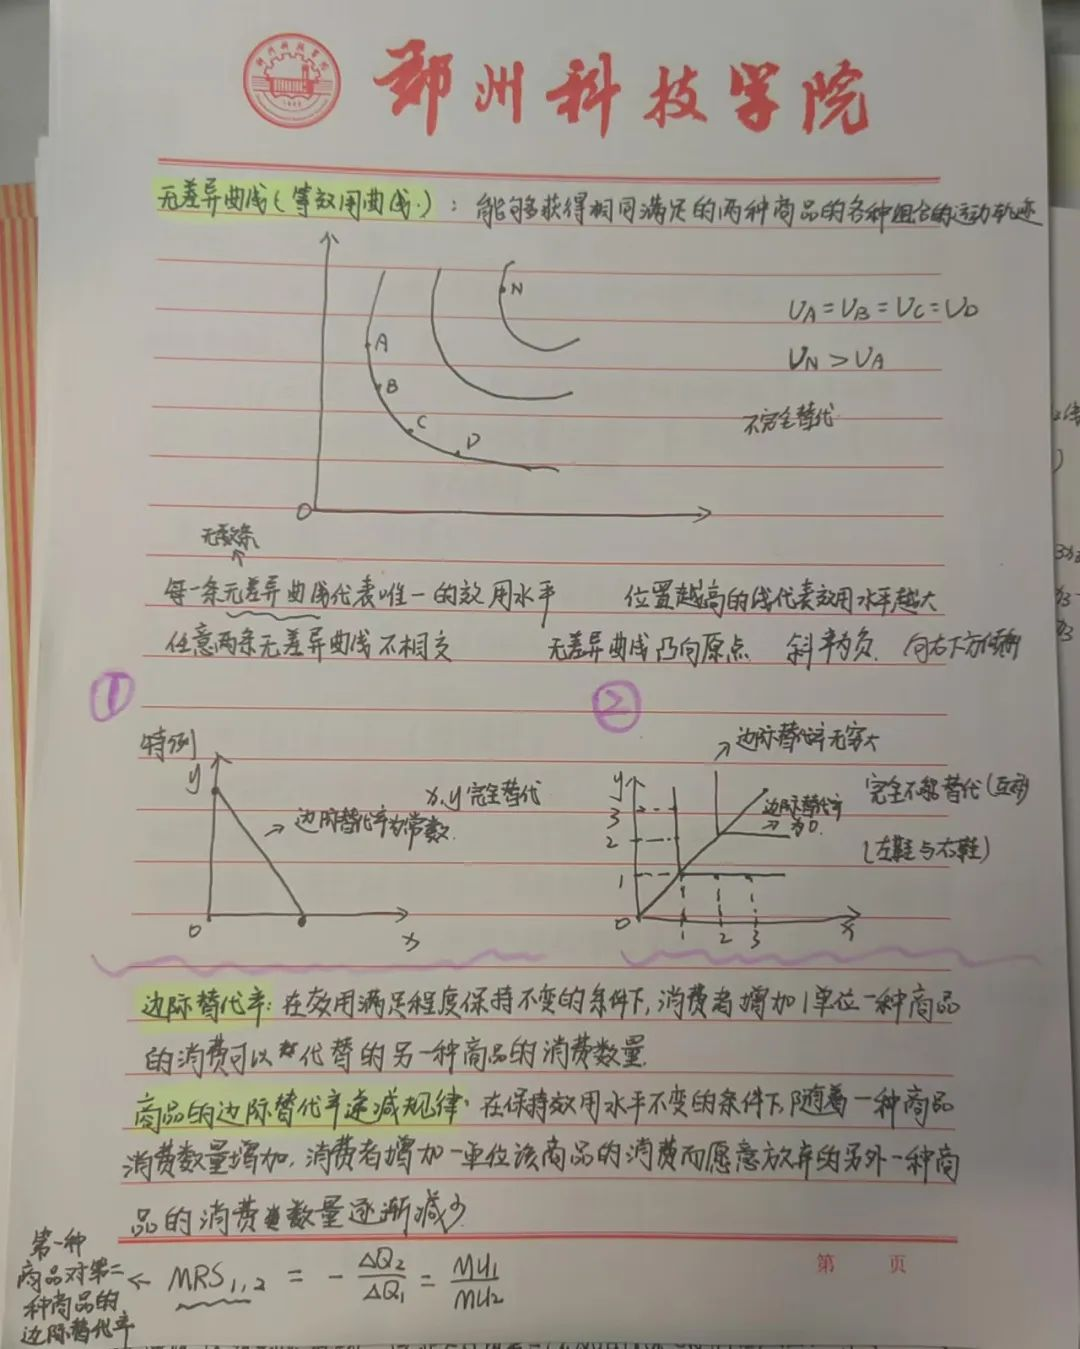 郑州科技学院
无差异曲线(等效用曲线.)：能够获得相同满足的两种商品的各种组合的运动轨迹
N
A
B
C
D
O
U_A=U_B=U_C=U_D
U_N>U_A
不完全替代
无数条
每一条无差异曲线代表唯一的效用水平 位置越高的线代表效用水平越大
任意两条无差异曲线不相交 无差异曲线凸向原点 斜率为负. 向右下方倾斜
① ②
特例
y
x,y完全替代
→边际替代率为常数.
O
x
→边际替代率无穷大
y
完全不能替代(互补)
3
边际替代率
→为0.
2
(左鞋与右鞋)
1
O
1 2 3
x
边际替代率：在效用满足程度保持不变的条件下,消费者增加1单位一种商品
的消费可以代替的另一种商品的消费数量.
商品的边际替代率递减规律：在保持效用水平不变的条件下,随着一种商品
消费数量增加,消费者增加一单位该商品的消费而愿意放弃的另外一种商
品的消费数量逐渐减少
第 页
第一种
商品对第二
种商品的
边际替代率
← MRS₁,₂ = -ΔQ₂/ΔQ₁ = MU₁/MU₂